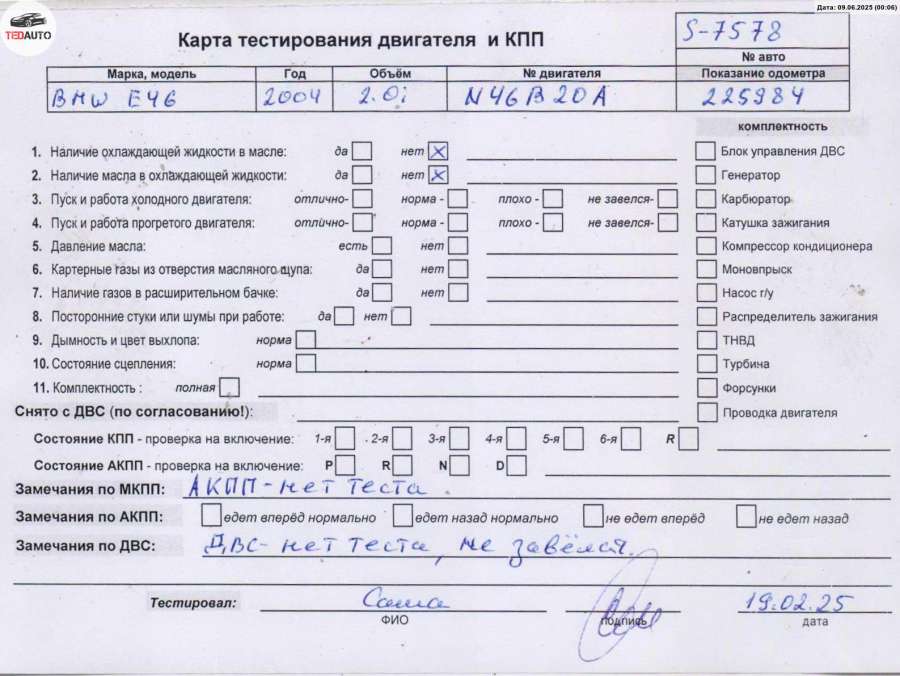 Дата: 09.06.2025 (00:06)
TEDAUTO
Карта тестирования двигателя и КПП
S-7578
№ авто
Марка, модель Год Объём № двигателя Показание одометра
BMW E46 2004 2.0i N46B20A 225984
комплектность
1. Наличие охлаждающей жидкости в масле: да нет X Блок управления ДВС
2. Наличие масла в охлаждающей жидкости: да нет X Генератор
3. Пуск и работа холодного двигателя: отлично- норма - плохо - не завелся- Карбюратор
4. Пуск и работа прогретого двигателя: отлично- норма - плохо - не завелся- Катушка зажигания
5. Давление масла: есть нет Компрессор кондиционера
6. Картерные газы из отверстия масляного щупа: да нет Моновпрыск
7. Наличие газов в расширительном бачке: да нет Насос г/у
8. Посторонние стуки или шумы при работе: да нет Распределитель зажигания
9. Дымность и цвет выхлопа: норма ТНВД
10. Состояние сцепления: норма Турбина
11. Комплектность : полная Форсунки
Снято с ДВС (по согласованию!): Проводка двигателя
Состояние КПП - проверка на включение: 1-я 2-я 3-я 4-я 5-я 6-я R
Состояние АКПП - проверка на включение: P R N D
Замечания по МКПП: АКПП-нет теста.
Замечания по АКПП: едет вперёд нормально едет назад нормально не едет вперёд не едет назад
Замечания по ДВС: ДВС- нет теста, не завёлся.
Тестировал: Саша 19.02.25
ФИО подпись дата